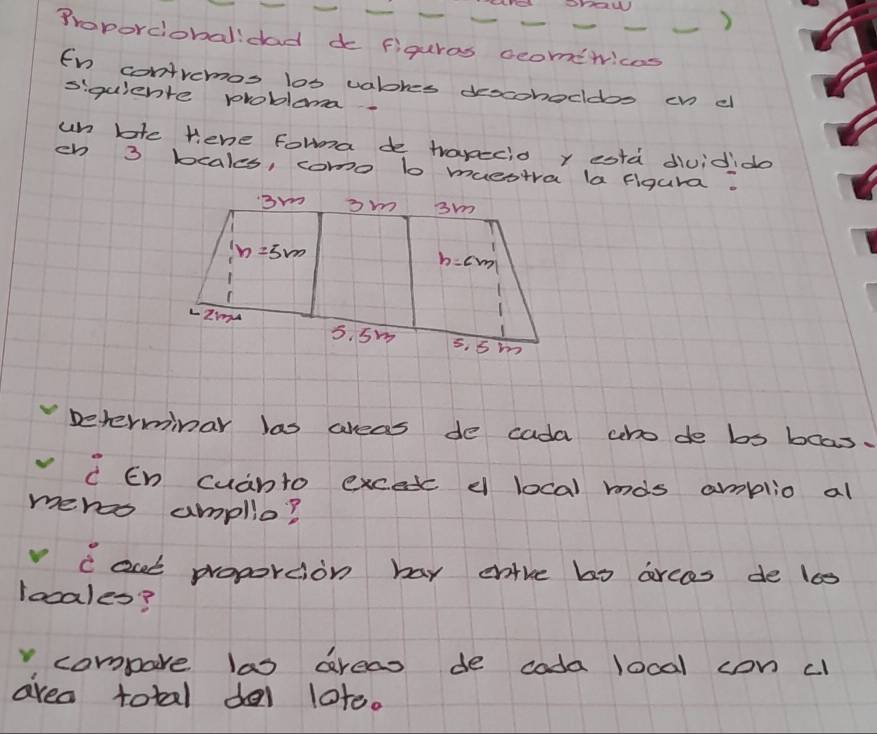 Proporcionalidad de figuras Geométricas
En contremos los valores desconocidos en el
siguiente problema.
un lote tiene forma de trapecio y está dividido
en 3 locales, como lo muestra la figura:
3m 3m 3m
h=5m h=6m
2m
5.5m 5.5m
Determinar las areas de cada uno de los locas.
¿ En cuánto excede el local más amplio al
menos amplio?
¿ Qué proporción hay entre las áreas de los
locales?
compare las áreas de cada local con el
área total del lote.